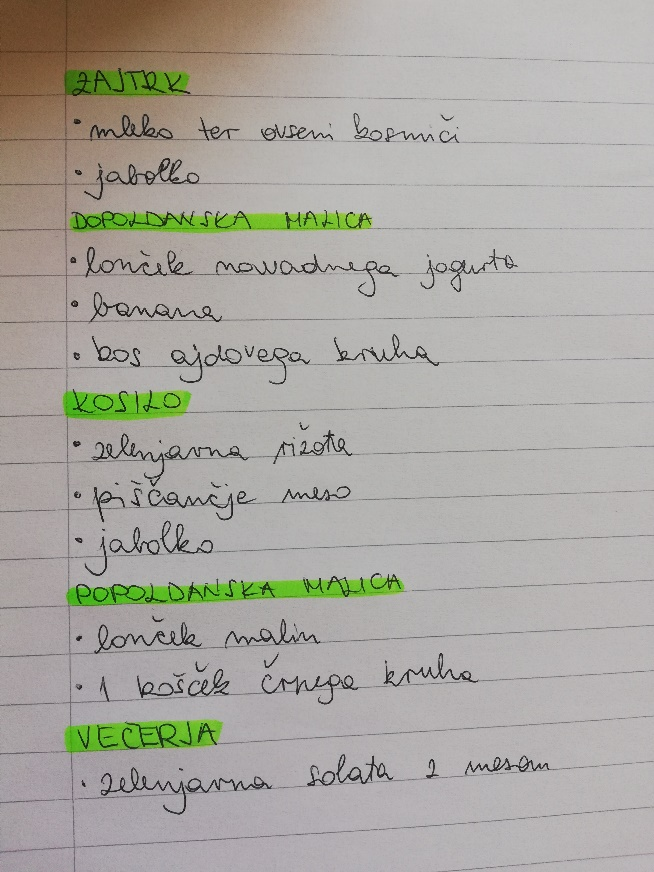 ZAJTRK
• mleko ter ovseni kosmiči
• jabolko
DOPOLDANSKA MALICA
• lonček navadnega jogurta
• banana
• kos ajdovega kruha
KOSILO
• zelenjavna rižota
• piščančje meso
• jabolko
POPOLDANSKA MALICA
• lonček malin
• 1 košček črnega kruha
VEČERJA
• zelenjavna solata z mesom